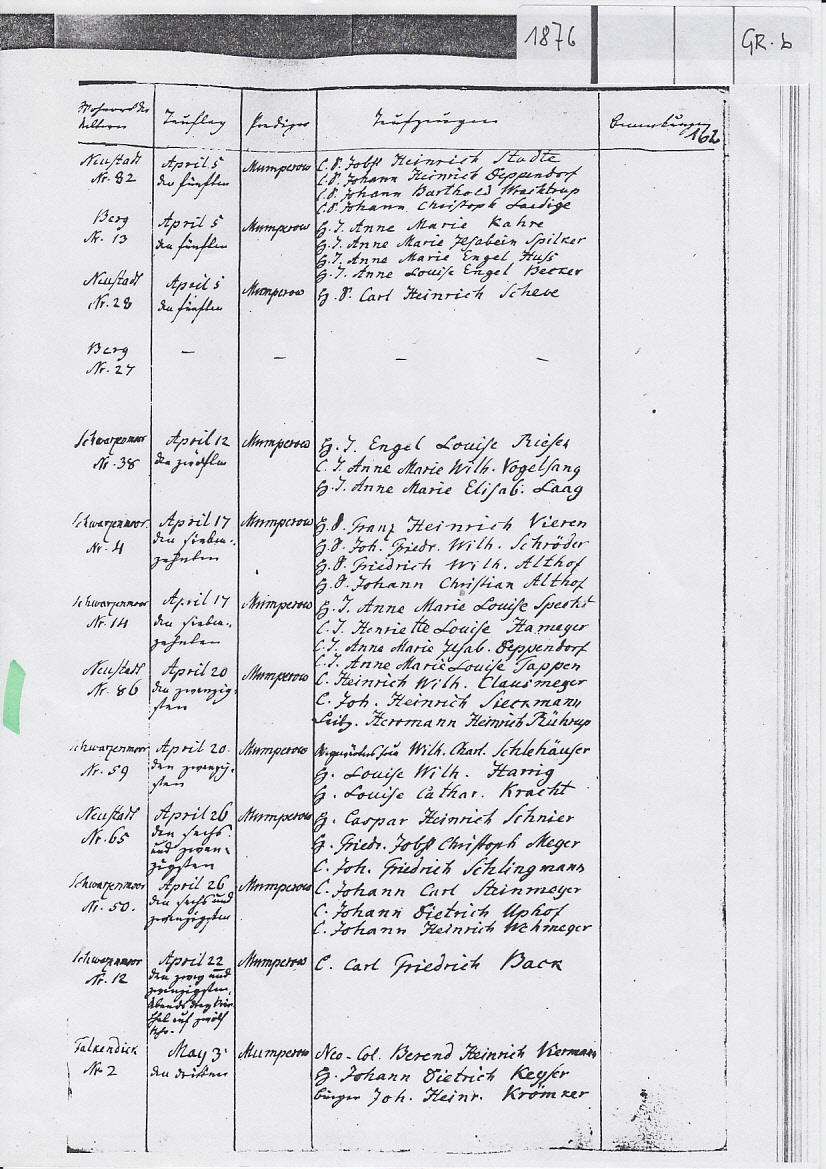 1876
GR. b
Wohnort der Aeltern Tauftag Prediger Taufzeugen Bemerkungen
162
Neustadt April 5 Mumperow C. S. Jobst Heinrich Stadte
Nr. 82 den fünften C. S. Johann Heinrich Deppendorf
C. S. Johann Barthold Worktrup
C. S. Johann Christoph Laedige
Berg April 5 Mumperow H. T. Anne Marie Kahre
Nr. 13 den fünften H. T. Anne Marie Ilsabein Spilker
H. T. Anne Marie Engel Huss
H. T. Anne Louise Engel Becker
Neustadt April 5 Mumperow H. S. Carl Heinrich Scheve
Nr. 28 den fünften
Berg – – – –
Nr. 27
Schwarzenmoor April 12 Mumperow H. T. Engel Louise Rieser
Nr. 38 den zwölften C. T. Anne Marie Wilh. Vogelsang
H. T. Anne Marie Elisab. Laag
Schwarzenmoor April 17 Mumperow H. S. Franz Heinrich Vieren
Nr. 4 den sieben- H. S. Joh. Friedr. Wilh. Schröder
zehnten H. S. Friedrich Wilh. Althof
H. S. Johann Christian Althof
Schwarzenmoor April 17 Mumperow H. T. Anne Marie Louise Specht
Nr. 14 den sieben- C. T. Henriette Louise Hameyer
zehnten C. T. Anne Marie Ilsab. Deppendorf
C. T. Anne Marie Louise Tappen
Neustadt April 20 Mumperow C. Heinrich Wilh. Clausmeyer
Nr. 86 den zwanzig- C. Joh. Heinrich Sieckmann
sten Leibz. Herrmann Heinrich Rührup
Schwarzenmoor April 20. Mumperow Wilh. Charl. Schlehäuser
Nr. 59 den zwanzig- H. Louise Wilh. Harrig
sten H. Louise Cathar. Kracht
Neustadt April 26 Mumperow H. Caspar Heinrich Schnier
Nr. 65 den sechs H. Friedr. Jobst Christoph Meyer
und zwan- C. Joh. Friedrich Schlingmann
zigsten
Schwarzenmoor April 26 Mumperow C. Johann Carl Steinmeyer
Nr. 50. den sechs und C. Johann Dietrich Uphof
zwanzigsten C. Johann Heinrich Wehmeyer
Schwarzenmoor April 22 Mumperow C. Carl Friedrich Back
Nr. 12 den zwey und
zwanzigsten,
Abends drey Vier-
thel auf zwölf
Uhr.
Falkendiek May 3 Mumperow Neo-Col. Berend Heinrich Viermann
Nr. 2 den dritten H. Johann Dietrich Keyser
Bürger Joh. Heinr. Krömker